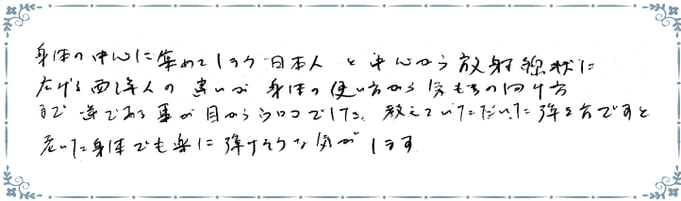 身体の中心に集めてしまう日本人と中心から放射線状に
広げる西洋人の違いが身体の使い方から気もちの向け方
まで逆である事が目からウロコでした。教えていただいた弾き方ですと
老いた身体でも楽に弾けそうな気がします